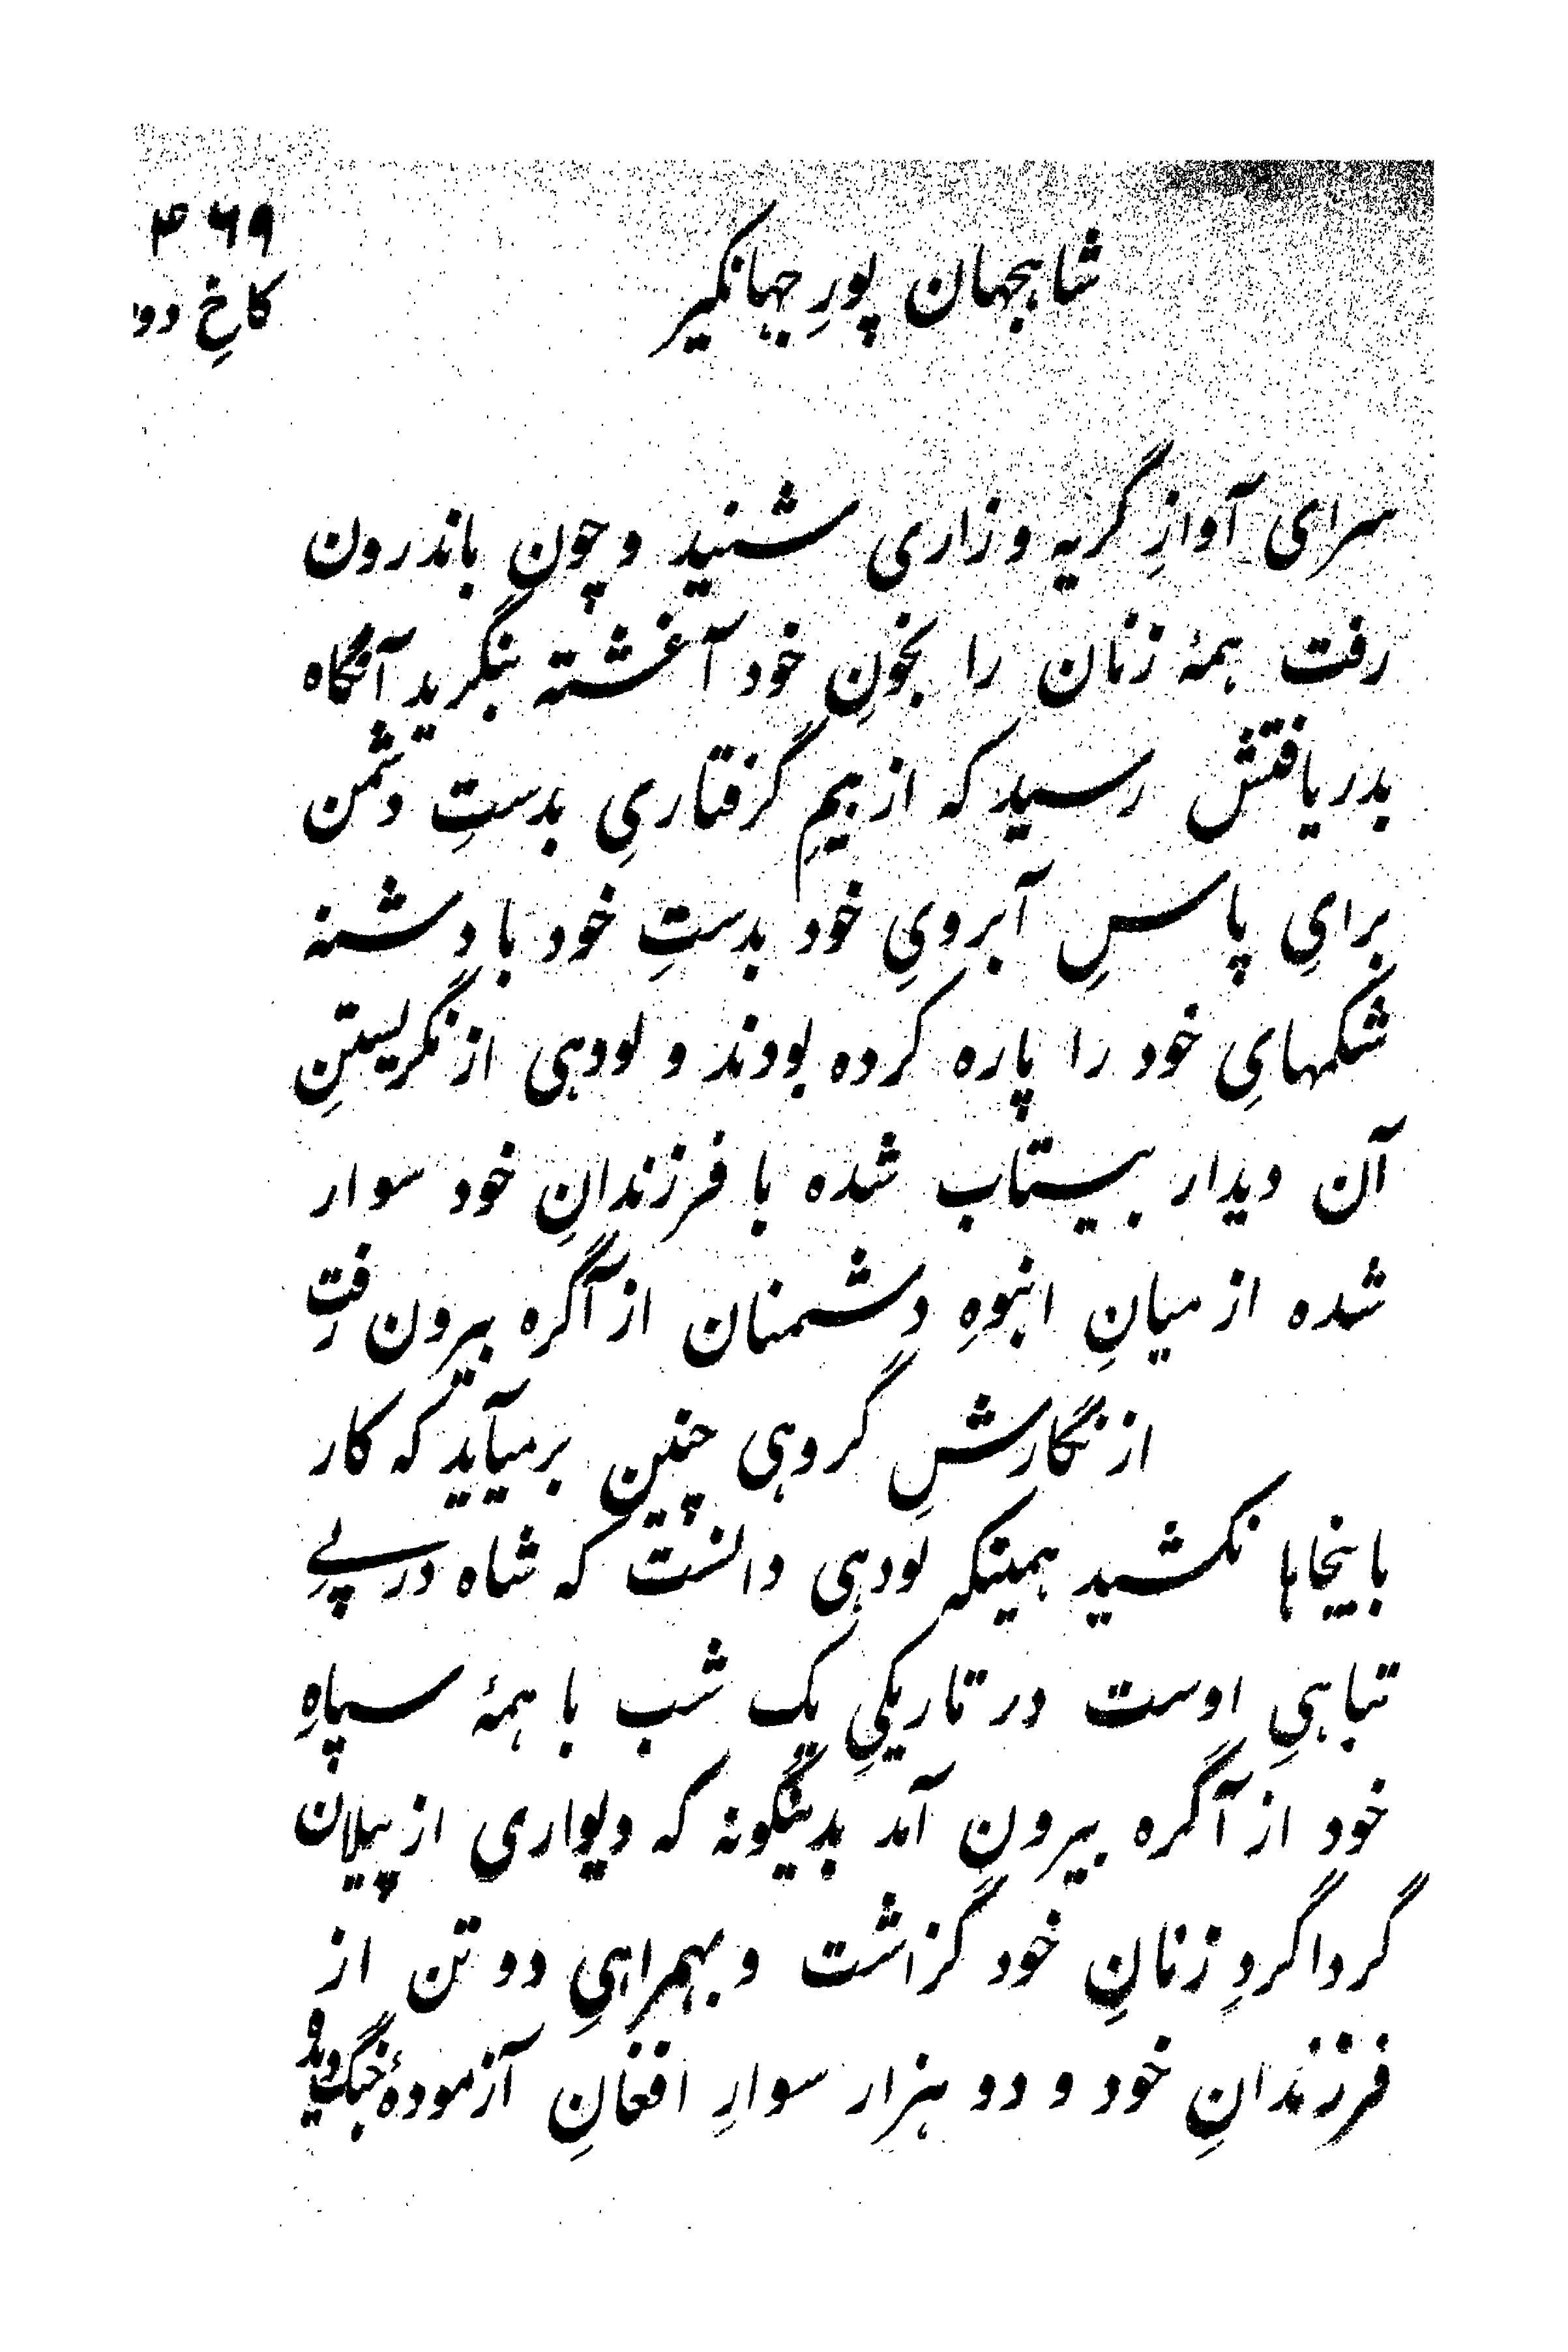 ۴۶۹
شاهجهان پورِ جهانگیر
کاخِ دو
سرای آوازِ گریه و زاری شنید و چون باندرون
رفت همهٔ زنان را بخونِ خود آغشته بنگرید آنگاه
بدریافتش رسید که از بیمِ گرفتاریِ بدستِ دشمن
برایِ پاسِ آبرویِ خود بدستِ خود با دشنه
شکمهایِ خود را پاره کرده بودند و لودهی از نگریستنِ
آن دیدار بیستاب شده با فرزندانِ خود سوار
شده از میانِ انبوهِ دشمنان از آگره بیرون رفت
از نگارشِ گروهی چنین برمیآید که کار
باینجاها نکشید همینکه لودهی دانست که شاه در پیِ
تباهیِ اوست در تاریکیِ یک شب با همهٔ سپاهِ
خود از آگره بیرون آمد بدینگونه که دیواری از پیلان
گرداگردِ زنانِ خود گزاشت و بهمراهیِ دو تن از
فرزندانِ خود و دو هزار سوارِ افغانِ آزمودهٔ جنگ